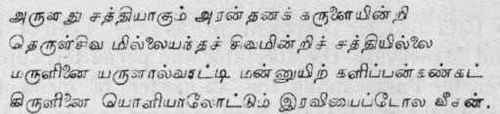 அருளது சத்தியாகும் அரன்தனக் கருளையின்றி
தெருள்சிவ மில்லையந்தச் சிவமின்றிச் சத்தியில்லை
மருளினை யருளால்வாட்டி மன்னுயிர்க் களிப்பன்கண்கட்
கிருளினை யொளியாலோட்டும் இரவியைப்போல வீசன்.